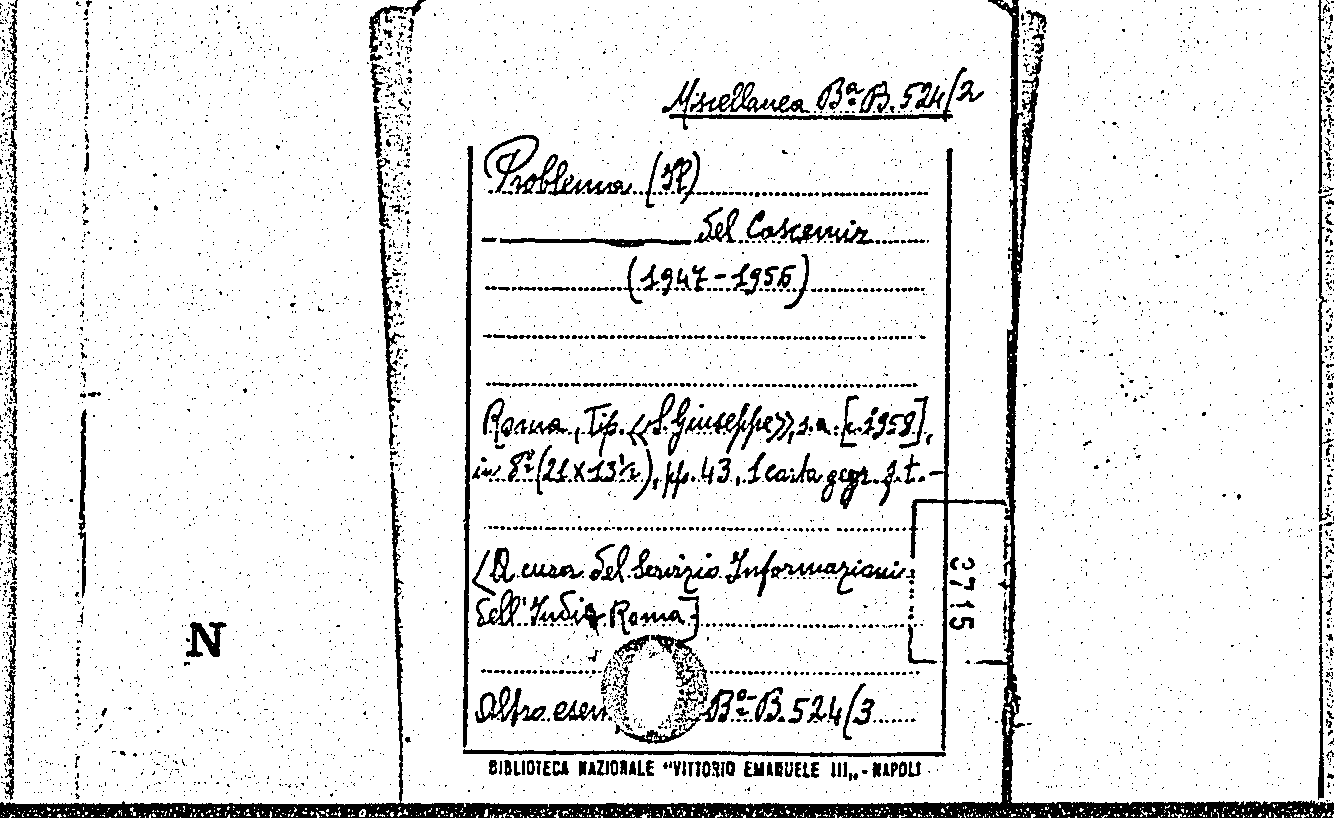 Miscellanea Bª B. 524/2
Problema (Il)
del Cascemir
(1947-1956)
Roma, Tip. «S. Giuseppe», s.a. [c.1958],
in 8º (21 x 13½), pp. 43, 1 carta geogr. f.t. -
[A cura del Servizio Informazioni
dell'India Roma]
3715
Altro Bª B. 524/3
BIBLIOTECA NAZIONALE "VITTORIO EMANUELE III„ - NAPOLI
N